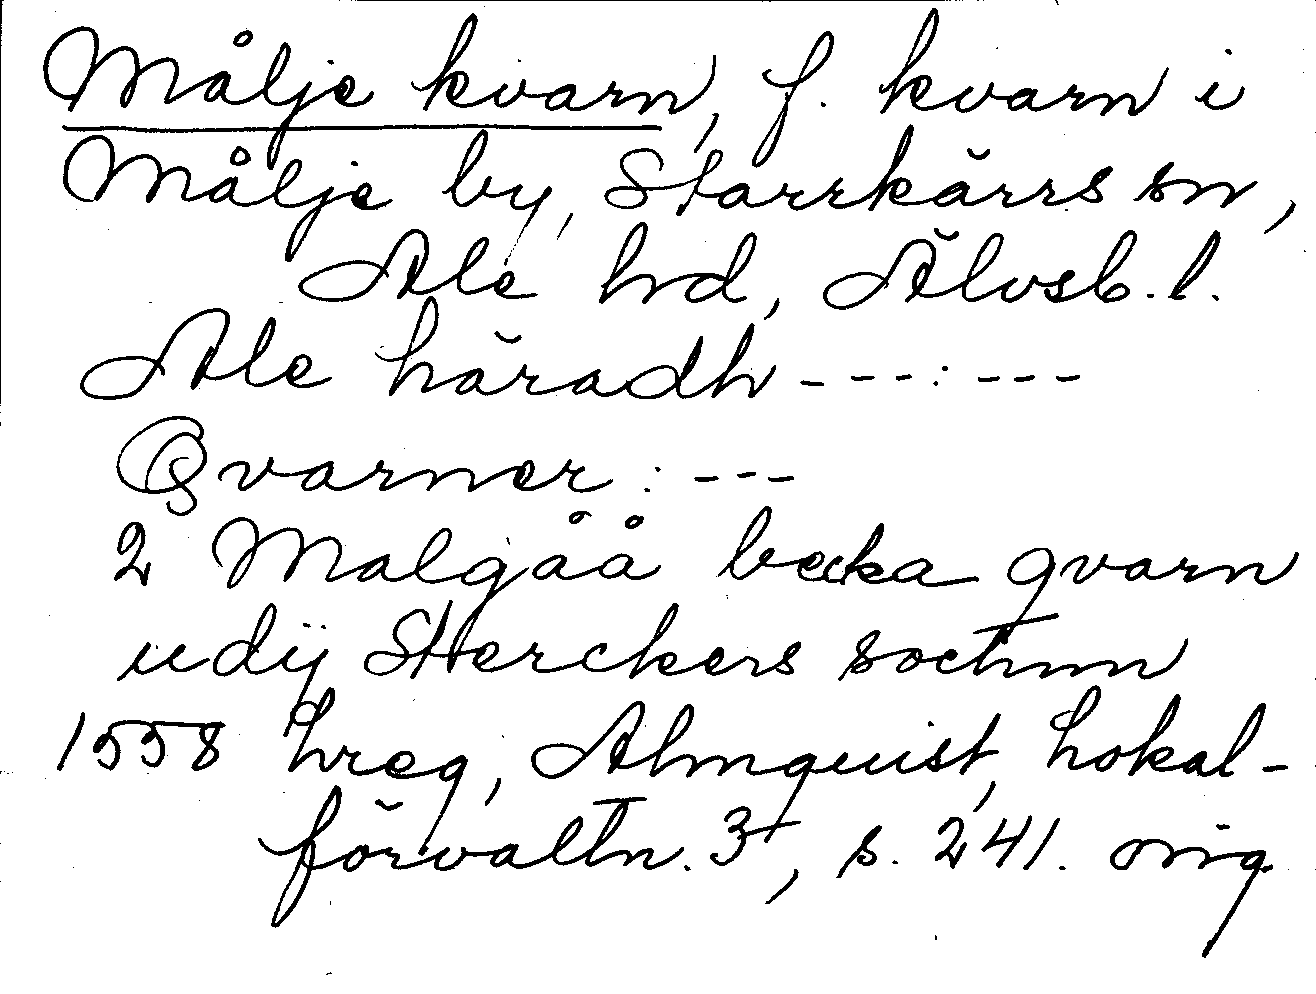 Målje kvarn, f. kvarn i
Målje by, Starrkärrs sn,
Ale hd, Älvsb. l.
Ale häradh - - - : - - -
Qvarner : - - -
2 Malgåå becka qvarn
udij Sterckers sochnn
1558 hreg, Almquist, Lokal-
förvaltn. 3, s. 241. orig